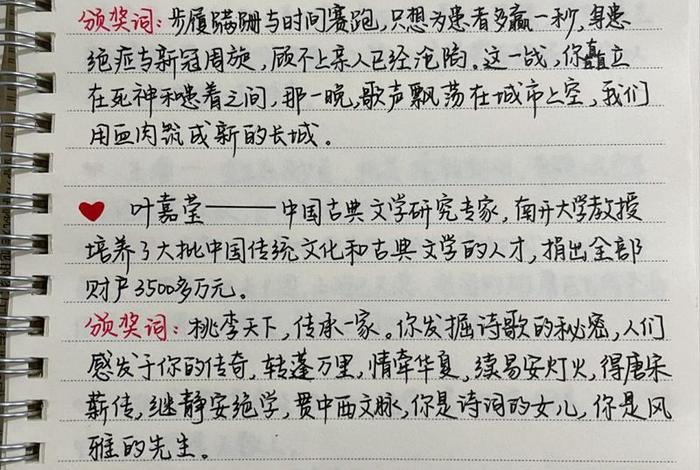 颁奖词：步履蹒跚与时间赛跑，只想为患者多赢一秒，身患
绝症与新冠周旋，顾不上亲人已经沦陷。这一战，你矗立
在死神和患者之间，那一晚，歌声飘荡在城市上空，我们
用血肉筑成新的长城。
叶嘉莹——中国古典文学研究专家，南开大学教授
培养了大批中国传统文化和古典文学的人才，捐出全部
财产3500多万元。
颁奖词：桃李天下，传承一家。你发掘诗歌的秘密，人们
感发于你的传奇，转蓬万里，情牵华夏，续易安灯火，得唐宋
薪传，继静安绝学，贯中西文脉，你是诗词的女儿，你是风
雅的先生。